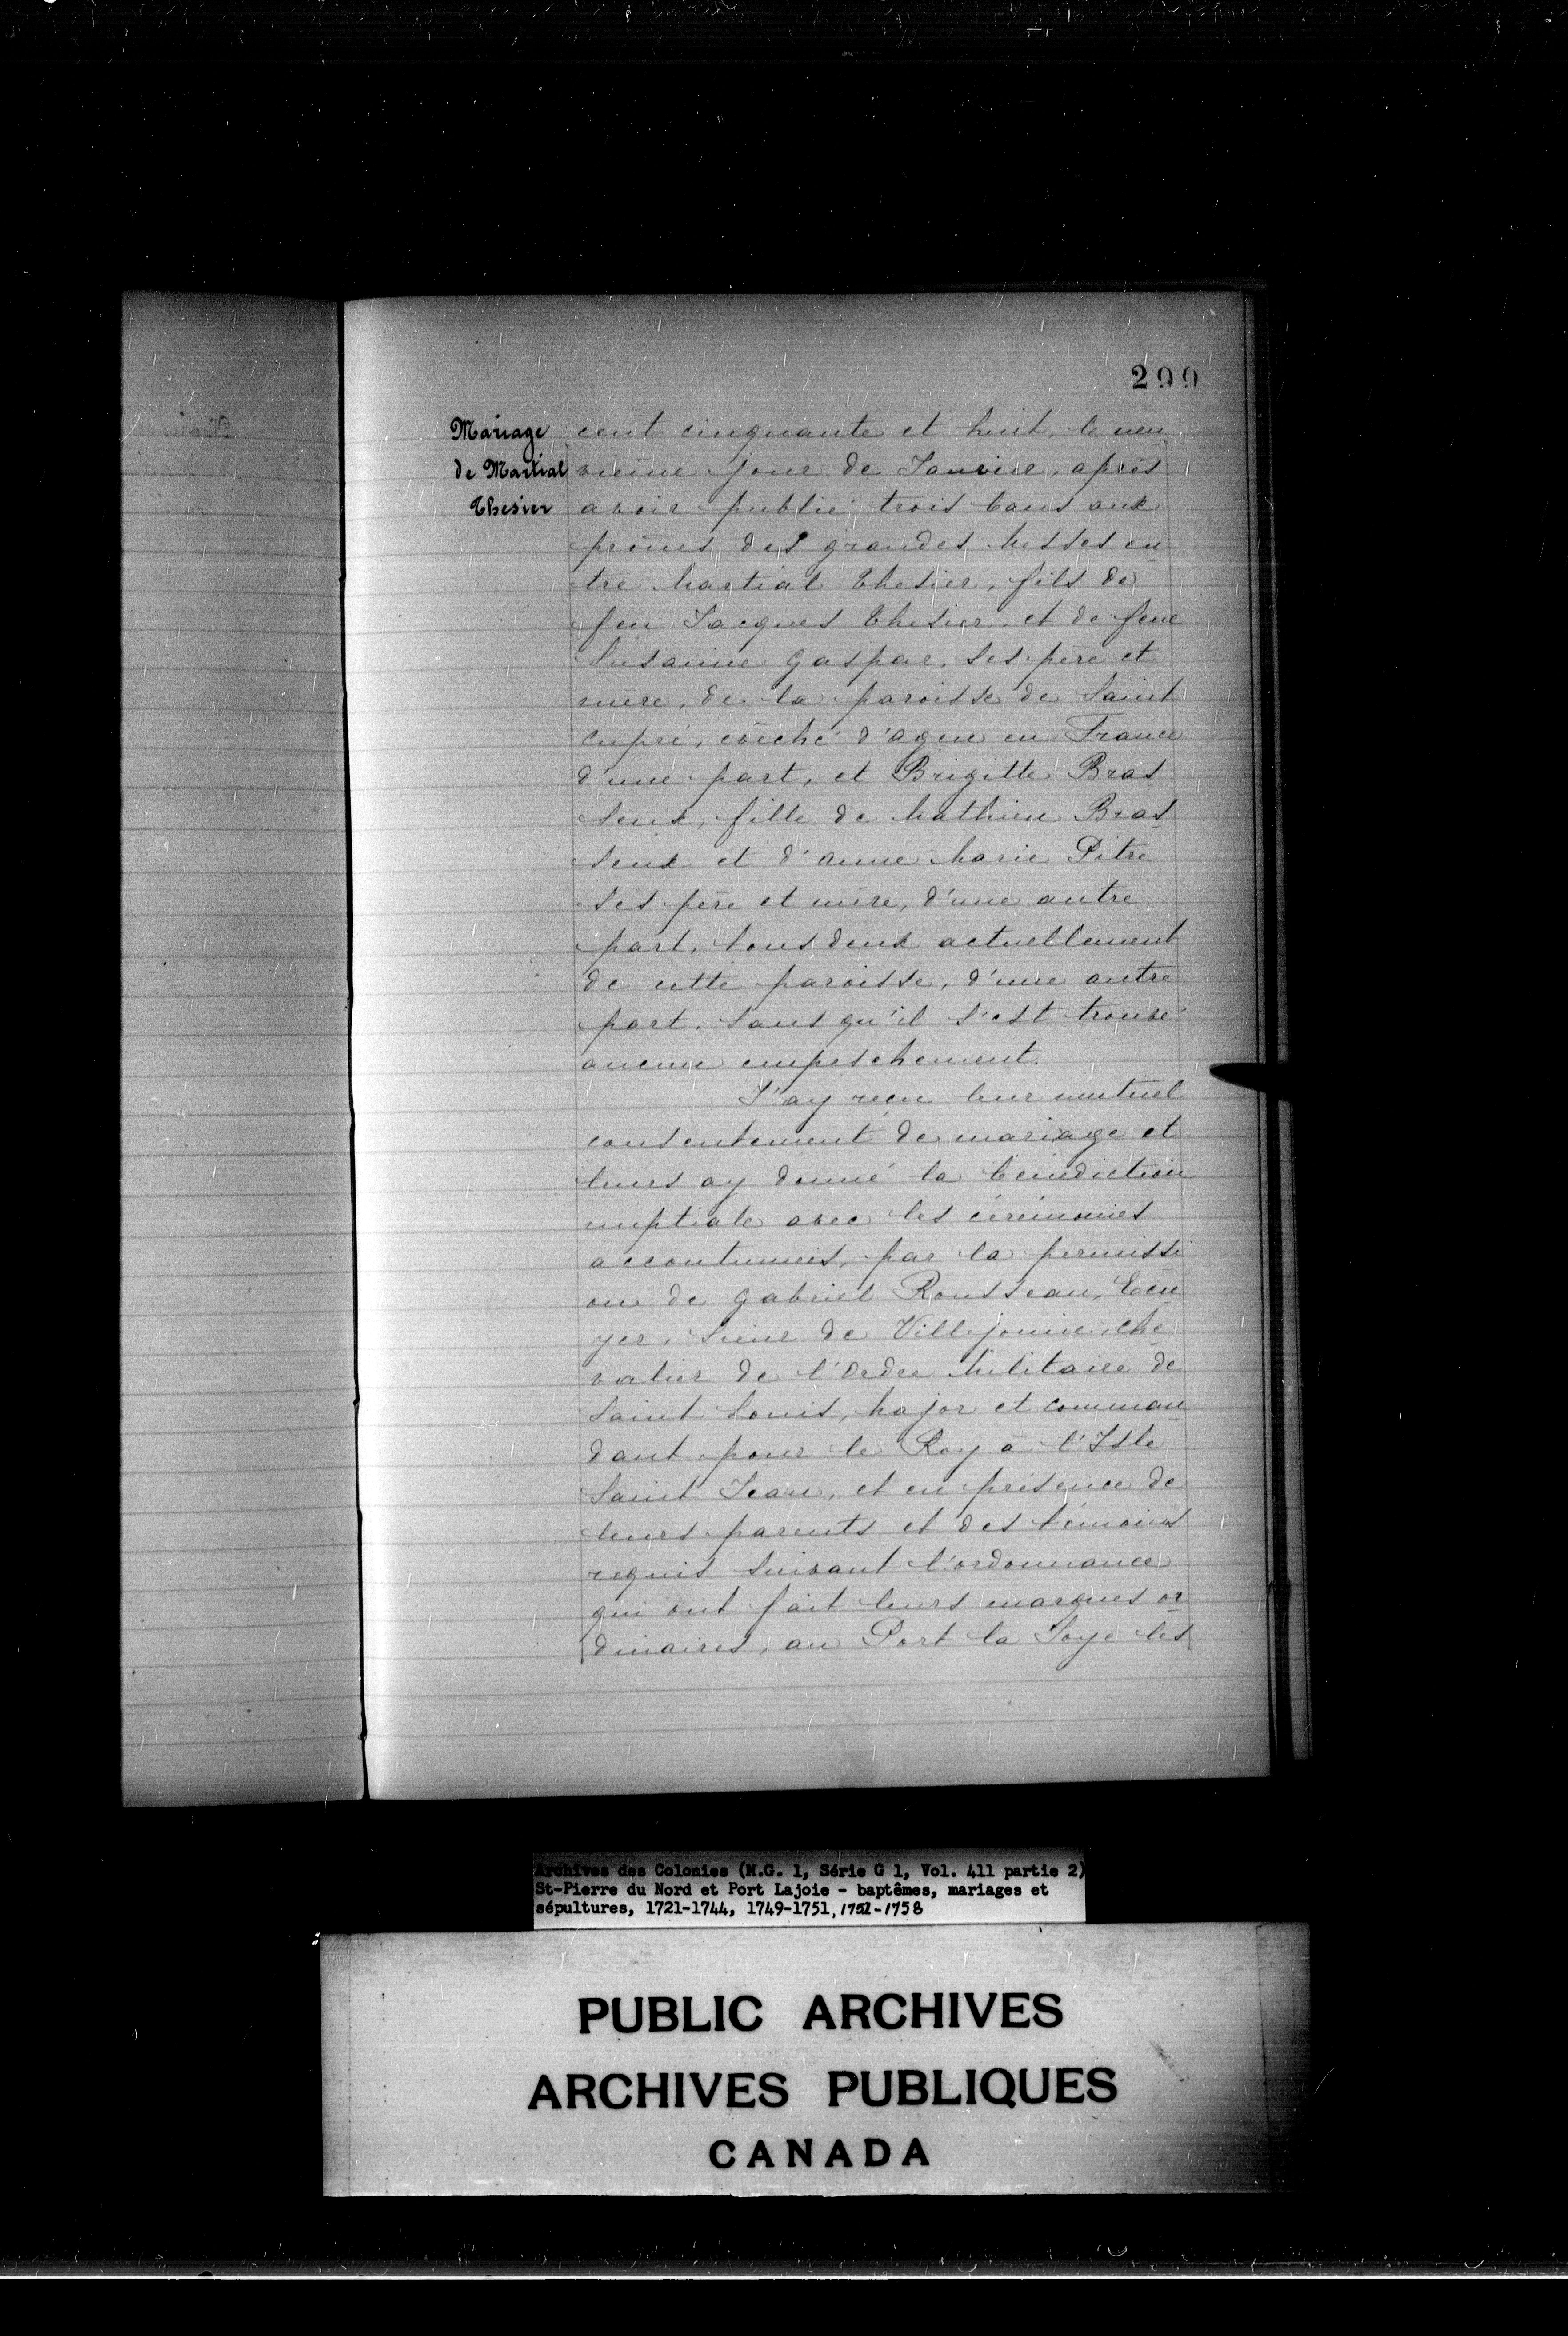 299
Mariage
de Martial
Thesier
cent cinquante et huit, le neu
vieme jour de Janvier, après
avoir publié trois bans aux
prônes des grandes Messes en
tre Martial Thesier, fils de
feu Jacques Thesier, et de feue
Susanne Gaspar, ses père et
mère, de la paroisse de Saint
Cupré, evêché d'agen en France
d'une part, et Brigitte Bras
seux, fille de Mathieu Bras
seux et d'anne Marie Pitre
ses père et mère, d'une autre
part, tous deux actuellement
de cette paroisse, d'une autre
part, sans qu'il s'est trouvé
aucun empeschement.
J'ay reçu leur mutuel
consentement de mariage et
leurs ay donné la bénédiction
nuptiale avec les cérémonies
accoutumées, par la permissi
on de Gabriel Rousseau, Ecu
yer, Sieur de Villejouin, che
valier de l'Ordre Militaire de
Saint Louis, Major et comman
dant pour le Roy à l'Isle
Saint Jean, et en présence de
leurs parents et des témoins
requis suivant l'ordonnance
qui ont fait leurs marques or
dinaires, au Port la Joye les
Archives des Colonies (M.G. 1, Série G 1, Vol. 411 partie 2)
St-Pierre du Nord et Port Lajoie - baptêmes, mariages et
sépultures, 1721-1744, 1749-1751, 1751-1758
PUBLIC ARCHIVES
ARCHIVES PUBLIQUES
CANADA